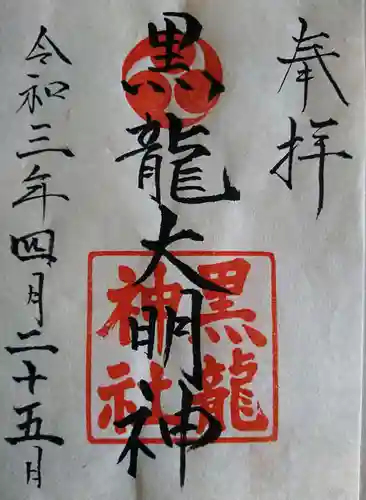 奉拝
黒龍大明神
黒龍神社
令和三年四月二十五月